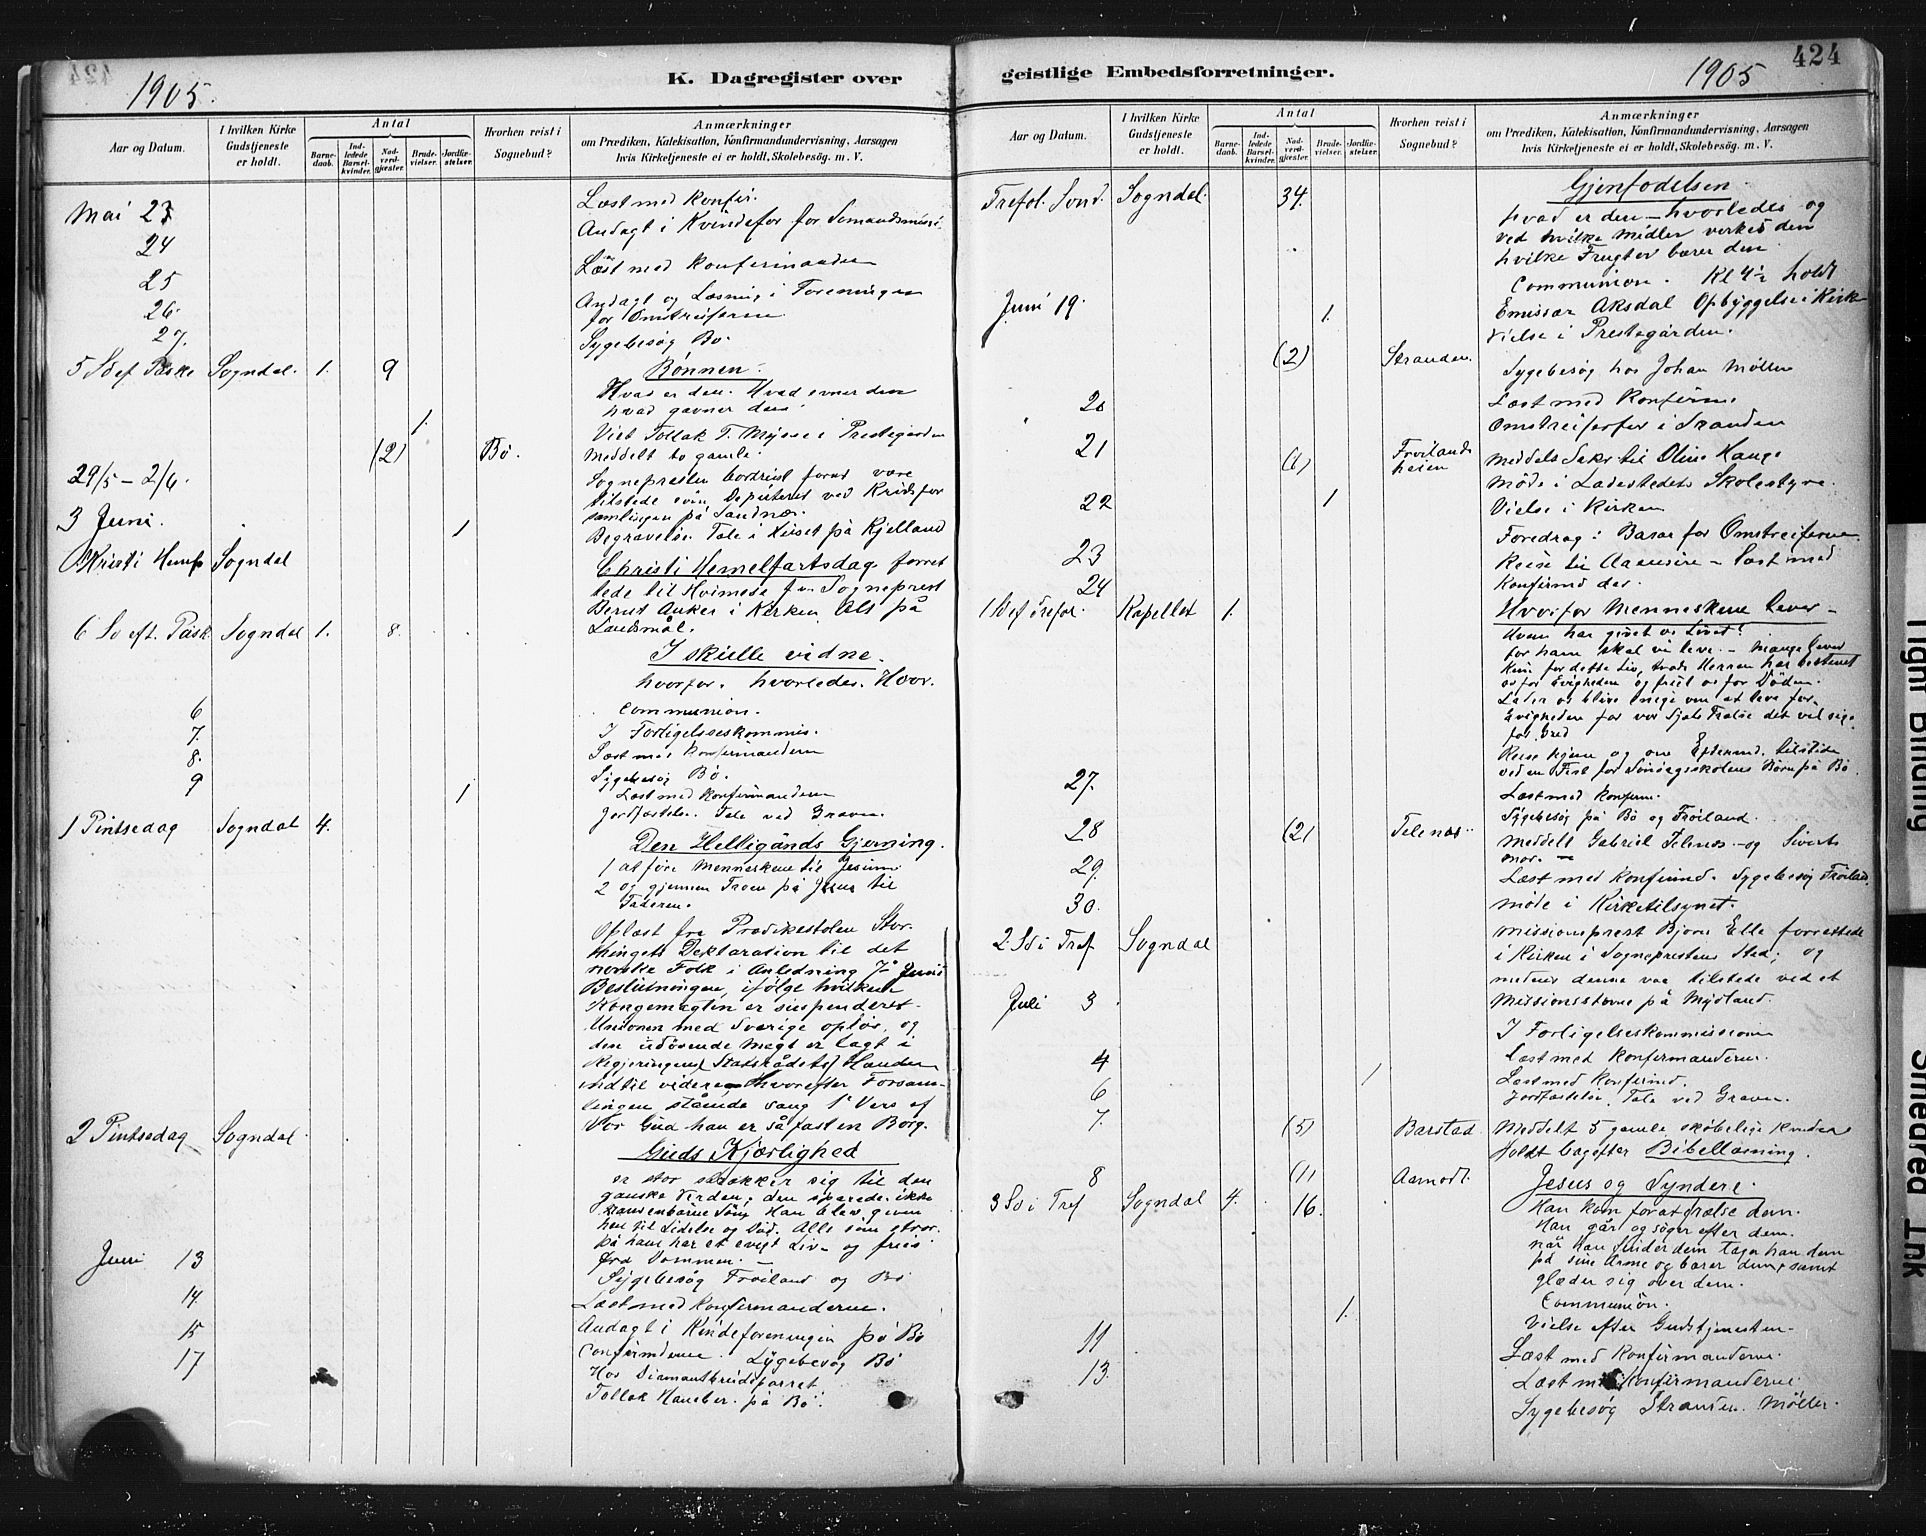 424
1905.
K. Dagregister over
Aar og Datum.
I hvilken Kirke Gudstjeneste er holdt.
Antal
Barnedaab.
Indledede Barselkvinder.
Nadverdgjæster.
Brudevielser.
Jordfæstelser.
Hvorhen reist i Sognebud?
Anmærkninger
om Prædiken, Katekisation, Konfirmandundervisning, Aarsagen
hvis Kirketjeneste ei er holdt, Skolebesøg. m. V.
Mai 23
Læst med Konfir.
24
Andagt i Kvindefor for Sømandsmissi.
25
Læst med Konfirmanden
26.
Andagt og Læsning i Foreningen
for Omstreiferne
27.
Sygebesøg Bø.
5 Sd ef Påske Sogndal. 1. 9
Bønnen.
Hvad er den. Hvad evner den
hvad gavner den
1.
Viet Tollak T. Mysse i Prestegården
(2) Bø.
Meddelt to gamle.
29/5 – 2/6.
Sognepresten være
tilstede som Deputeret ved Kridsfor
samlingen på Sandnæs.
3 Juni. 1
Begravelse. Tale i Huset på Kjelland
Kristi Hemf Sogndal
Christi Hemelfartsdag forret
tede til Høimesse Sogneprest
Bernt Anker i Kirken. Alt på
Landsmål.
6 Sd eft. Påsk Sogndal 1. 8.
I skulle vidne.
hvorfor. hvorledes. Hvor.
Communion.
6
I Forligelseskommis.
7.
Læst med Konfirmanderne
8.
Sygebesøg Bø.
9 1
Læst med Konfirmanderne
Jordfæstelse. Tale ved Graven.
1 Pintsedag Sogndal 4.
Den Helligånds Gjerning.
1 at føre Menneskene til Jesum
2 og gjennem Troen på Jesus til
Faderen.
Oplæst fra Prædikestolen Stor-
thingets Deklaration til det
norske Folk i Anledning 7 Juni
Beslutningen, ifølge hvilken
Kongemagten er suspenderet
Unionen med Sverige opløs, og
den udøvende Magt er lagt i
Regjeringens (Statsrådets) Hænder
indtil videre. Hvorefter Forsam-
lingen stående sang 1ste Vers af
Vor Gud han er så fast en Borg.
2 Pintsedag Sogndal
Guds Kjærlighed
er stor strækker sig til den
ganske Verden; den sparede ikke
den enbårne Søn Han blev given
hen til Lidelse og Død. Alle som tror
på ham har et evigt Liv – og fries
fra Dommen. –
Juni 13
Sygebesøg Frøiland og Bø
14.
Læst med Konfirmanderne.
15
Andagt i Kvindeforeningen på Bø
17
Confirmderne. Sygebesøg Bø
Hos Diamantbrudeparret
Tollak Haneber. på Bø.
geistlige Embedsforretninger.
1905
424
Aar og Datum.
I hvilken Kirke Gudstjeneste er holdt.
Antal
Barnedaab.
Indledede Barselkvinder.
Nadverdgjæster.
Brudevielser.
Jordfæstelser.
Hvorhen reist i Sognebud?
Anmærkninger
om Prædiken, Katekisation, Konfirmandundervisning, Aarsagen
hvis Kirketjeneste ei er holdt, Skolebesøg m. V.
Trefol. Sønd. Sogndal. 34.
Gjenfødelsen.
hvad er den – hvorledes og
ved hvilke Midler verkes den
hvilke Frugter bærer den
Communion. Kl 4½ holdt
Emissær Aksdal Opbyggelse i Kirk
Juni 19. 1.
Vielse i Prestegården.
(2) Stranden
Sygebesøg hos Johan Møller
20
Læst med Konfirme
Omstreiferfor i Stranden
21 (1) Frøilandsheien
Meddelt Sakr til Oline Hauge
Møde i Ladestedets Skolestyre.
22 1
Vielse i Kirken
Foredrag i Basar for Omstreiferne
23
Reise til Aanesire – Læst med
24
Konfirmd der.
1 Sd ef Trefol. Kapellet 1.
Hvorfor Menneskene lever –
Hvem har givet os Livet?
for ham skal vi leve. – Mange lever
kun for dette Liv, trods Herren har bestemt
os for Evigheden og friet os for Døden.
Lader os blive enige om at leve for
Evigheden for vor Sjæls Frelse det vil sige
for Gud
Reise hjem og om Efterind. tilstede
ved en Fest for Søndagsskolens Børn på Bø
27.
Læst med Konfirm.
Sygebesøg på Bø og Frøiland.
28 (2) Telenæs.
Meddelt Gabriel Telenes – og Siverts
mor. –
29.
Læst med Konfirmd. Sygebesøg Frøiland.
30.
Møde i Kirketilsynet.
2 Sd i Tref Sogndal
Missionsprest Bjorn Elle forrettede
i Kirken i Sogneprestens Sted, og
medens denne var tilstede ved et
Missionsstevne på Mydland.
Juli 3
I Forligelseskommissionen
4
Læst med Konfirmanderne.
6 1
Læst med Konfirmd.
Jordfæstelse. Tale ved Graven.
7. (5) Barstad
Meddelt 5 gamle skrøbelige Kvinder
Holdt bagefter Bibellæsning.
8 (1) Aamodt.
3 Sd i Tref Sogndal 4. 16.
Jesus og Syndere.
Han kom for at frelse dem.
Han går og søger efter dem.
når han finder dem tager han dem
på sine Arme og bærer dem, samt
glæder sig over dem.
Communion.
1.
Vielse efter Gudstjenesten
11
Læst med Konfirmanderne.
13.
Læst med Konfirmanderne.
Sygebesøg Stranden. Møller.
Tight Binding
Smeared Ink